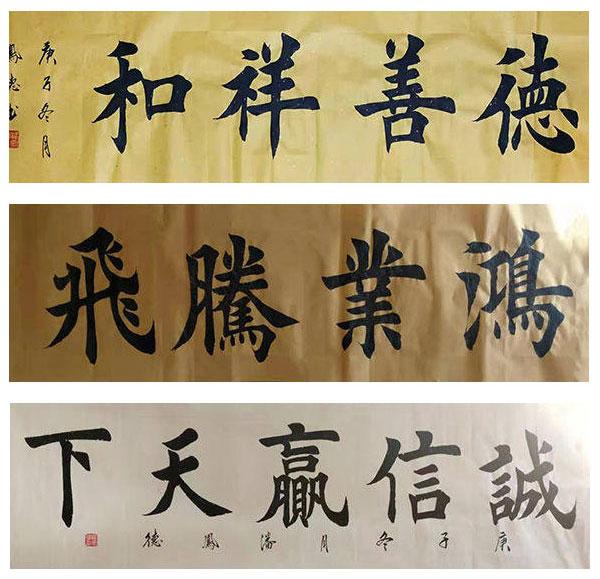 德善祥和
庚子冬月
鴻業騰飛
誠信贏天下
庚子冬月潘鳳德